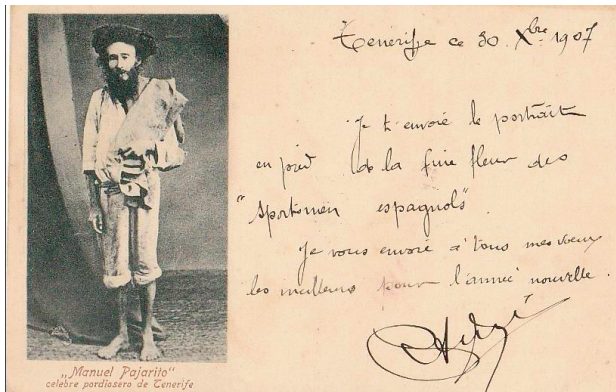 Tenérife ce 30 Xbre 1907
Je t'envoie le portrait
en pied de la fine fleur des
"Sportsmen espagnols".
Je vous envoie à tous mes vœux
les meilleurs pour l'année nouvelle.
„Manuel Pajarito“
celebre pordiosero de Tenerife